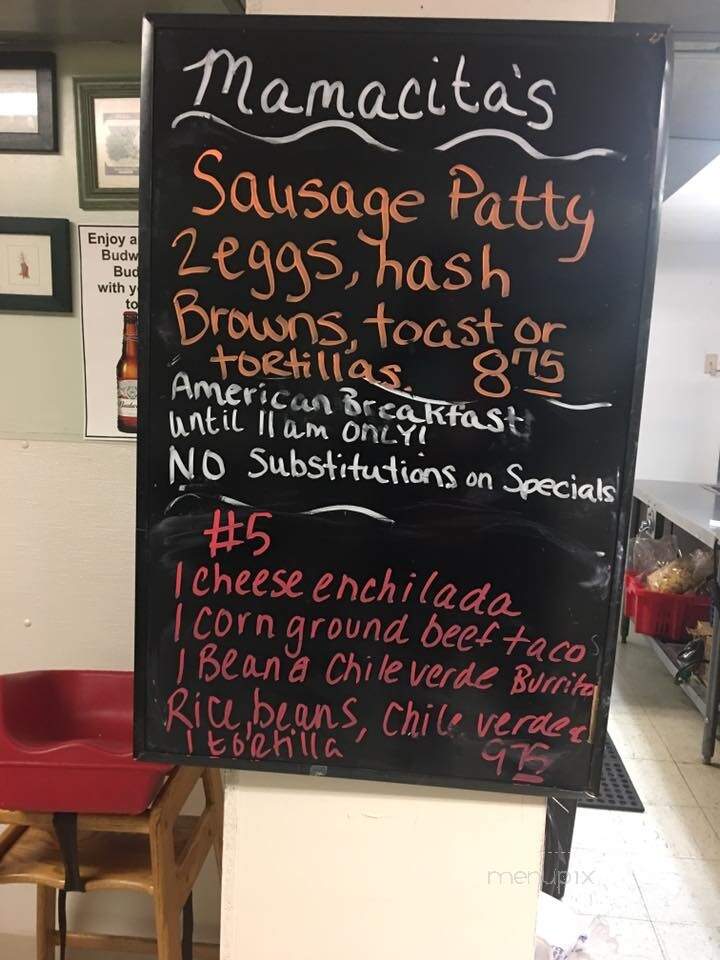 Mamacita's
Sausage Patty
2 eggs, hash
Browns, toast or
tortillas. 8 75
American Breakfast
until 11am ONLY!
NO Substitutions on Specials
#5
1 cheese enchilada
1 corn ground beef tacos
1 Bean & Chile verde Burrito
Rice, beans, Chile verde &
1 tortilla 9 75
Enjoy a
Budw
Bud
with y
to
menupix